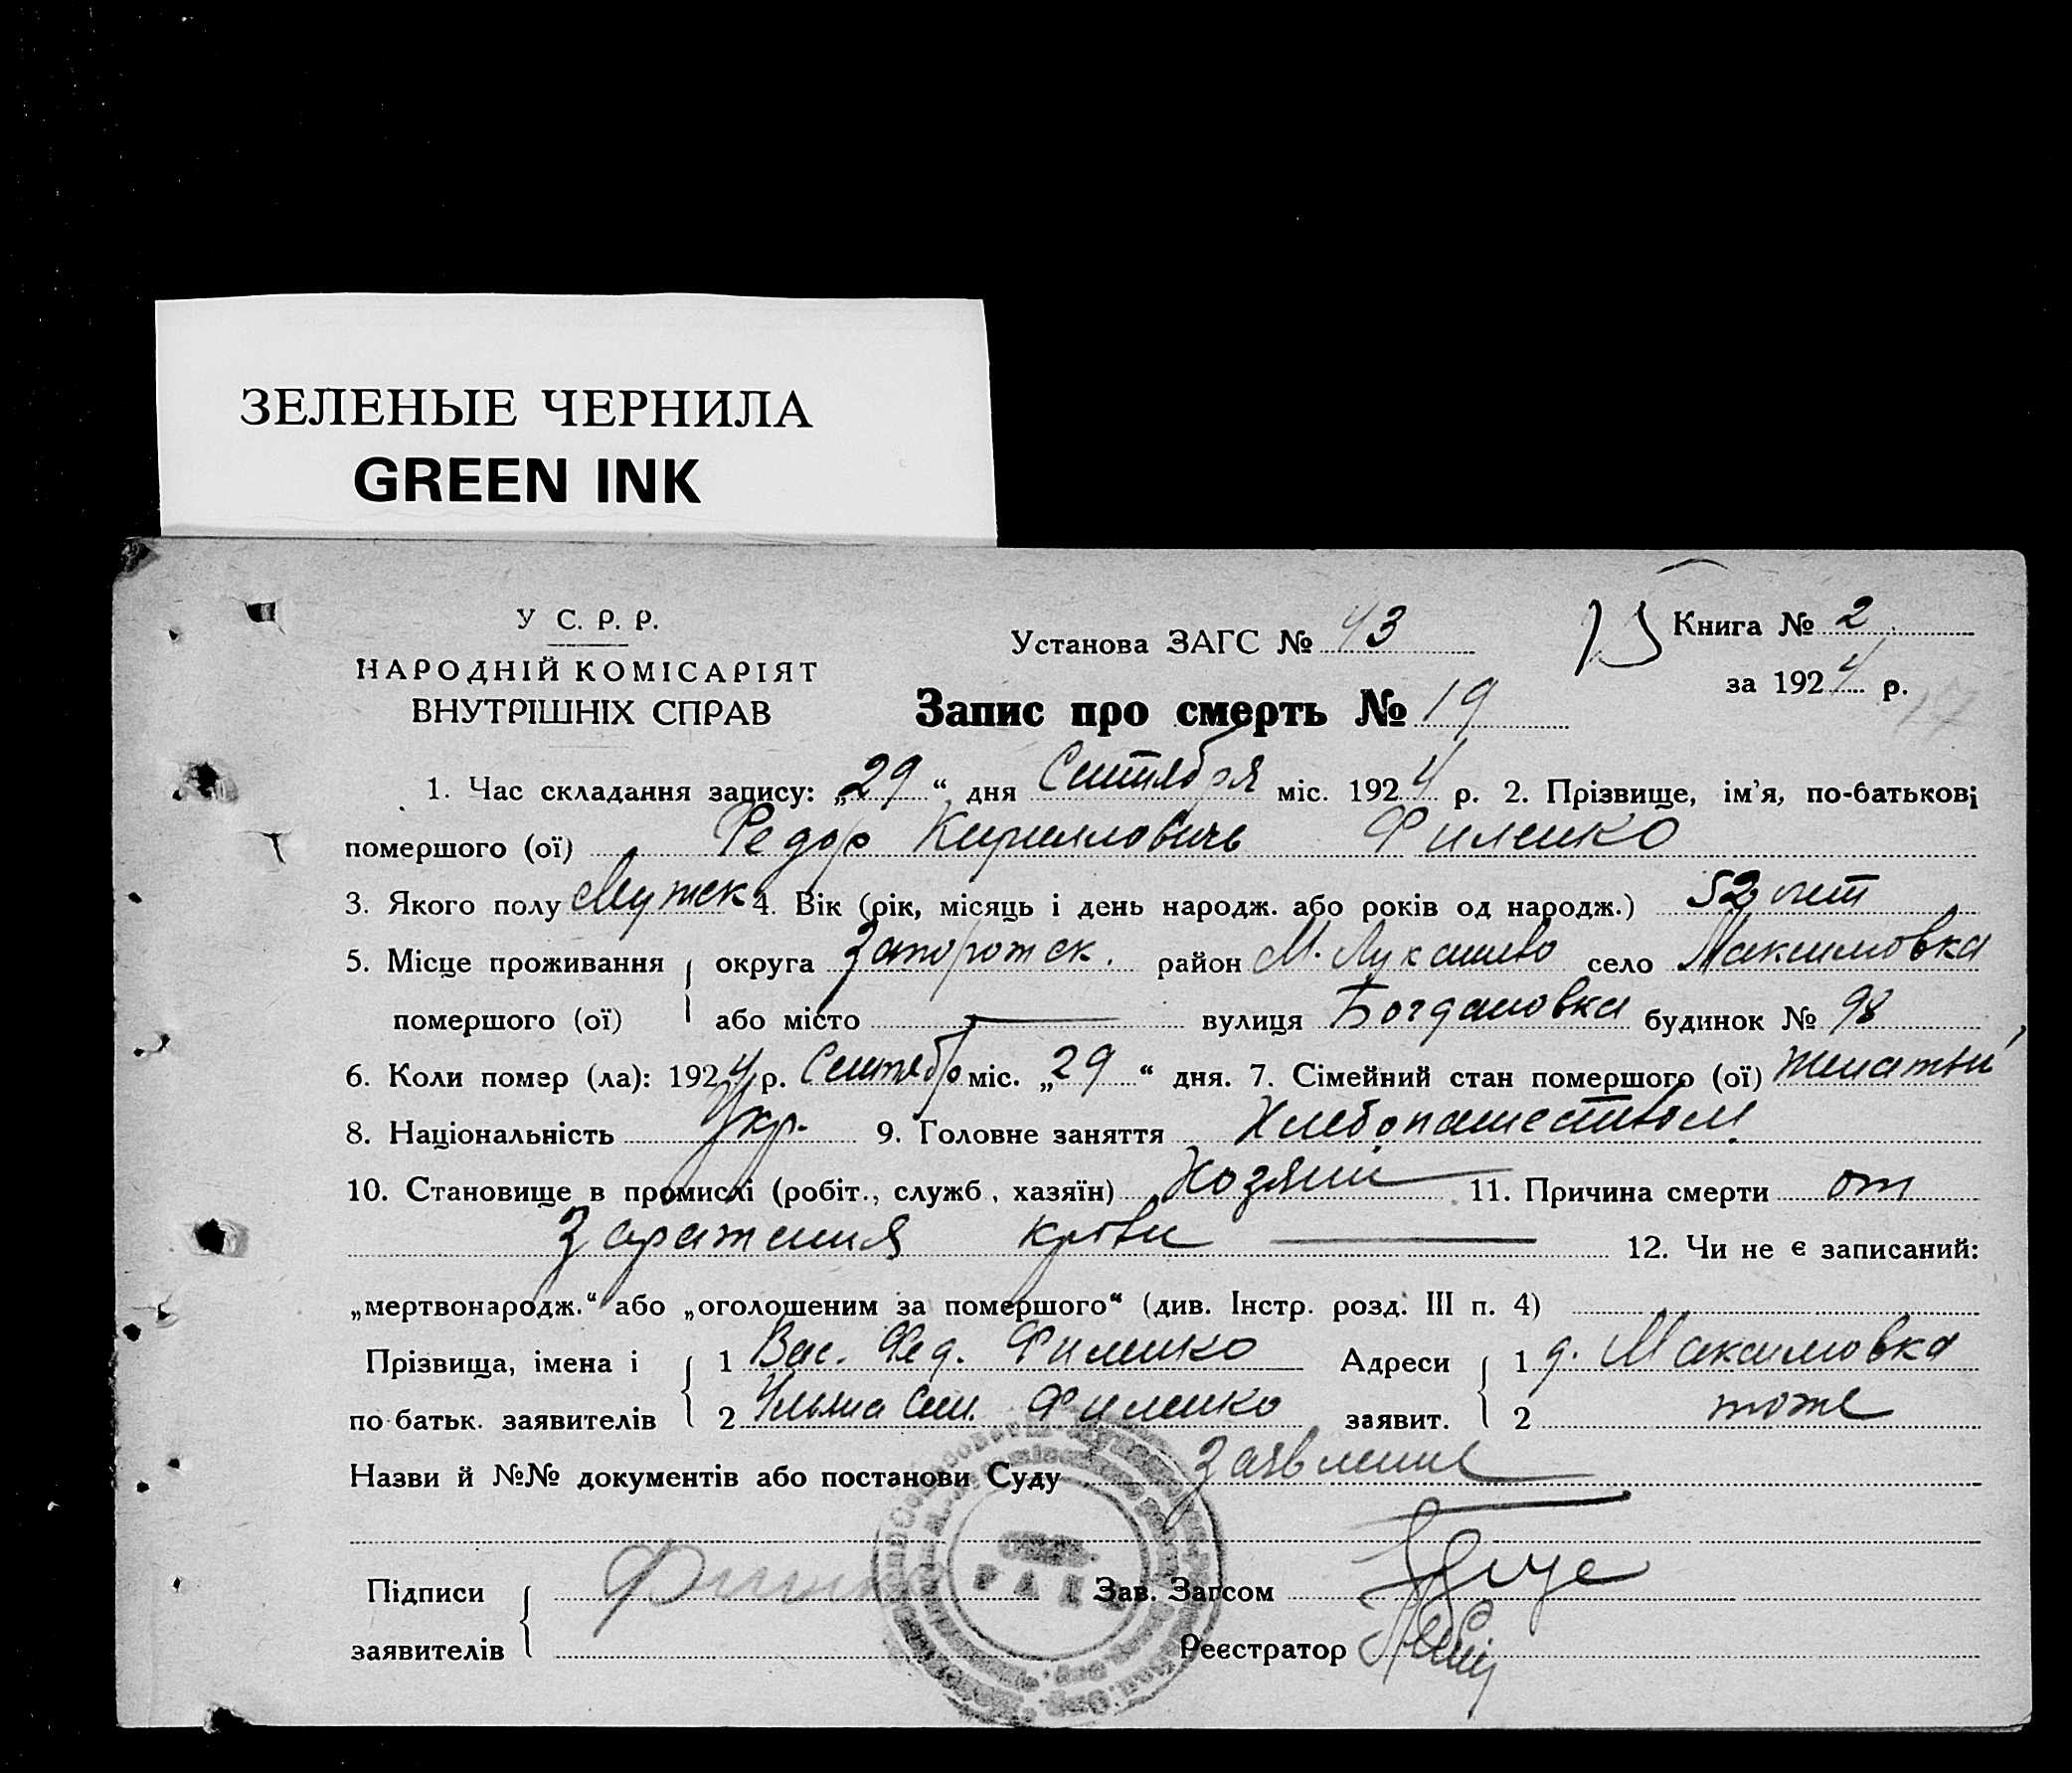 ЗЕЛЕНЫЕ ЧЕРНИЛА
GREEN INK
У С. Р. Р.
НАРОДНІЙ КОМІСАРІЯТ
ВНУТРІШНІХ СПРАВ
Установа ЗАГС № 43
15 Книга № 2
за 1924 р.
17
Запис про смерть № 19
1. Час складання запису: „29“ дня Сентября міс. 1924 р. 2. Прізвище, ім'я, по-батькові
помершого (ої) Федор Кириллович Филенко
3. Якого полу Мужск 4. Вік (рік, місяць і день народж. або років од народж.) 52 лет
5. Місце проживання округа Запорожск. район М. Лукашево село Максимовка
помершого (ої) або місто — вулиця Богдановка будинок № 98
6. Коли помер (ла): 1924 р. Сентябр міс. „29“ дня. 7. Сімейний стан помершого (ої) женатый
8. Національність Укр. 9. Головне заняття Хлебопашеством
10. Становище в промислі (робіт., служб, хазяїн) Хозяин 11. Причина смерти от
заражения крови — 12. Чи не є записаний:
„мертвонародж.“ або „оголошеним за помершого“ (див. Інстр. розд. III п. 4)
Прізвища, імена і 1 Вас. Фед. Филенко Адреси 1 д. Максимовка
по батьк. заявителів 2 Ульяна Сем. Филенко заявит. 2 тоже
Назви й №№ документів або постанови Суду Заявление
Підписи Зав. Загсом
заявителів Реєстратор